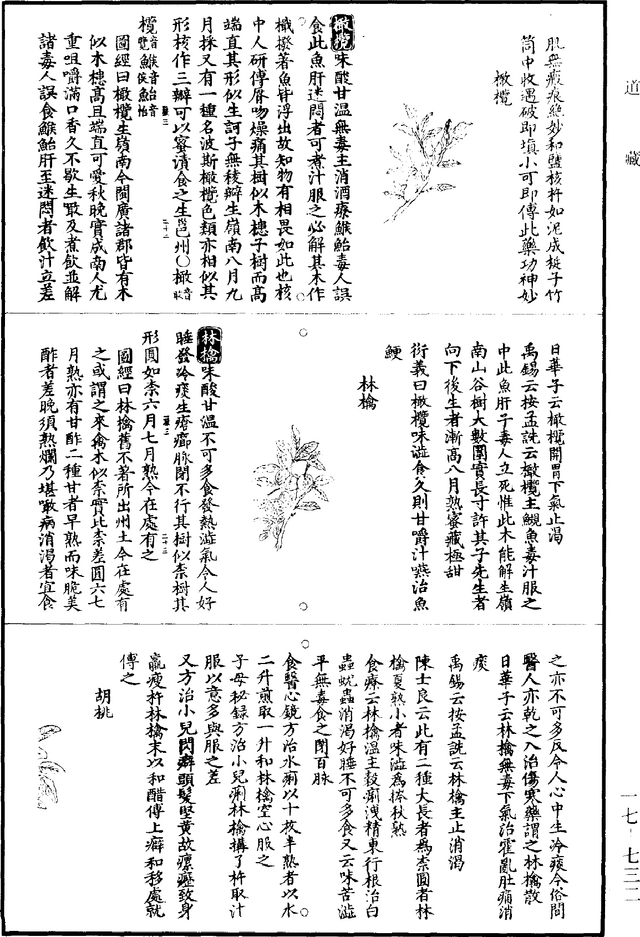 道藏
肌無瘢痕絶妙和鹽核杵如泥成梃子竹
筒中收遇破即填小可即傅此藥功神妙
橄欖
橄欖味酸甘温無毒主消酒療鯸鮐毒人誤
食此魚肝迷悶者可煮汁服之必解其木作
檝撥著魚皆浮出故知物有相畏如此也核
中人研傅脣吻燥痛其樹似木槵子樹而高
端直其形似生訶子無稜瓣生嶺南八月九
月採又有一種名波斯橄欖色類亦相似其
形核作三瓣可以蜜漬食之生邕州○橄音
欖音覽鯸音侯鮐音怡
圖經曰橄欖生嶺南今閩廣諸郡皆有木
似木槵高且端直可愛秋晚實成南人尤
重咀嚼滿口香久不歇生㗖及煮飲並解
諸毒人誤食鯸鮐肝至迷悶者飲汁立差
日華子云橄欖開胃下氣止瀉
禹錫云按孟詵云橄欖主䱌魚毒汁服之
中此魚肝子毒人立死惟此木能解生嶺
南山谷樹大數圍實長寸許其子先生者
向下後生者漸高八月熟蜜藏極甜
衍義曰橄欖味澁食久則甘嚼汁嚥治魚
鯁
林檎
林檎味酸甘温不可多食發熱澁氣令人好
睡發冷痰生瘡癤脉閉不行其樹似柰樹其
形圓如柰六月七月熟今在處有之
圖經曰林檎舊不著所出州土今在處有
之或謂之來禽木似柰實比柰差圓六七
月熟亦有甘酢二種甘者早熟而味脆美
酢者差晚須熟爛乃堪噉病消渴者宜食
之亦不可多反令人心中生冷痰今俗間
醫人亦乾之入治傷寒藥謂之林檎散
日華子云林檎無毒下氣治霍亂肚痛消
痰
禹錫云按孟詵云林檎主止消渴
陳士良云此有二種大長者爲柰圓者林
檎夏熟小者味澁爲㮈秋熟
食療云林檎温主穀痢洩精東行根治白
蟲蚘蟲消渴好睡不可多食又云味苦澁
平無毒食之閉百脉
食醫心鏡方治水痢以十枚半熟者以水
二升煎取一升和林檎空心服之
子母秘録方治小兒痢林檎搆了杵取汁
服以意多與服之差
又方治小兒閃癖頭髮竪黄故瘰癧致身
羸瘦杵林檎末以和醋傅上癖和移處就
傅之
胡桃
一七·七三二